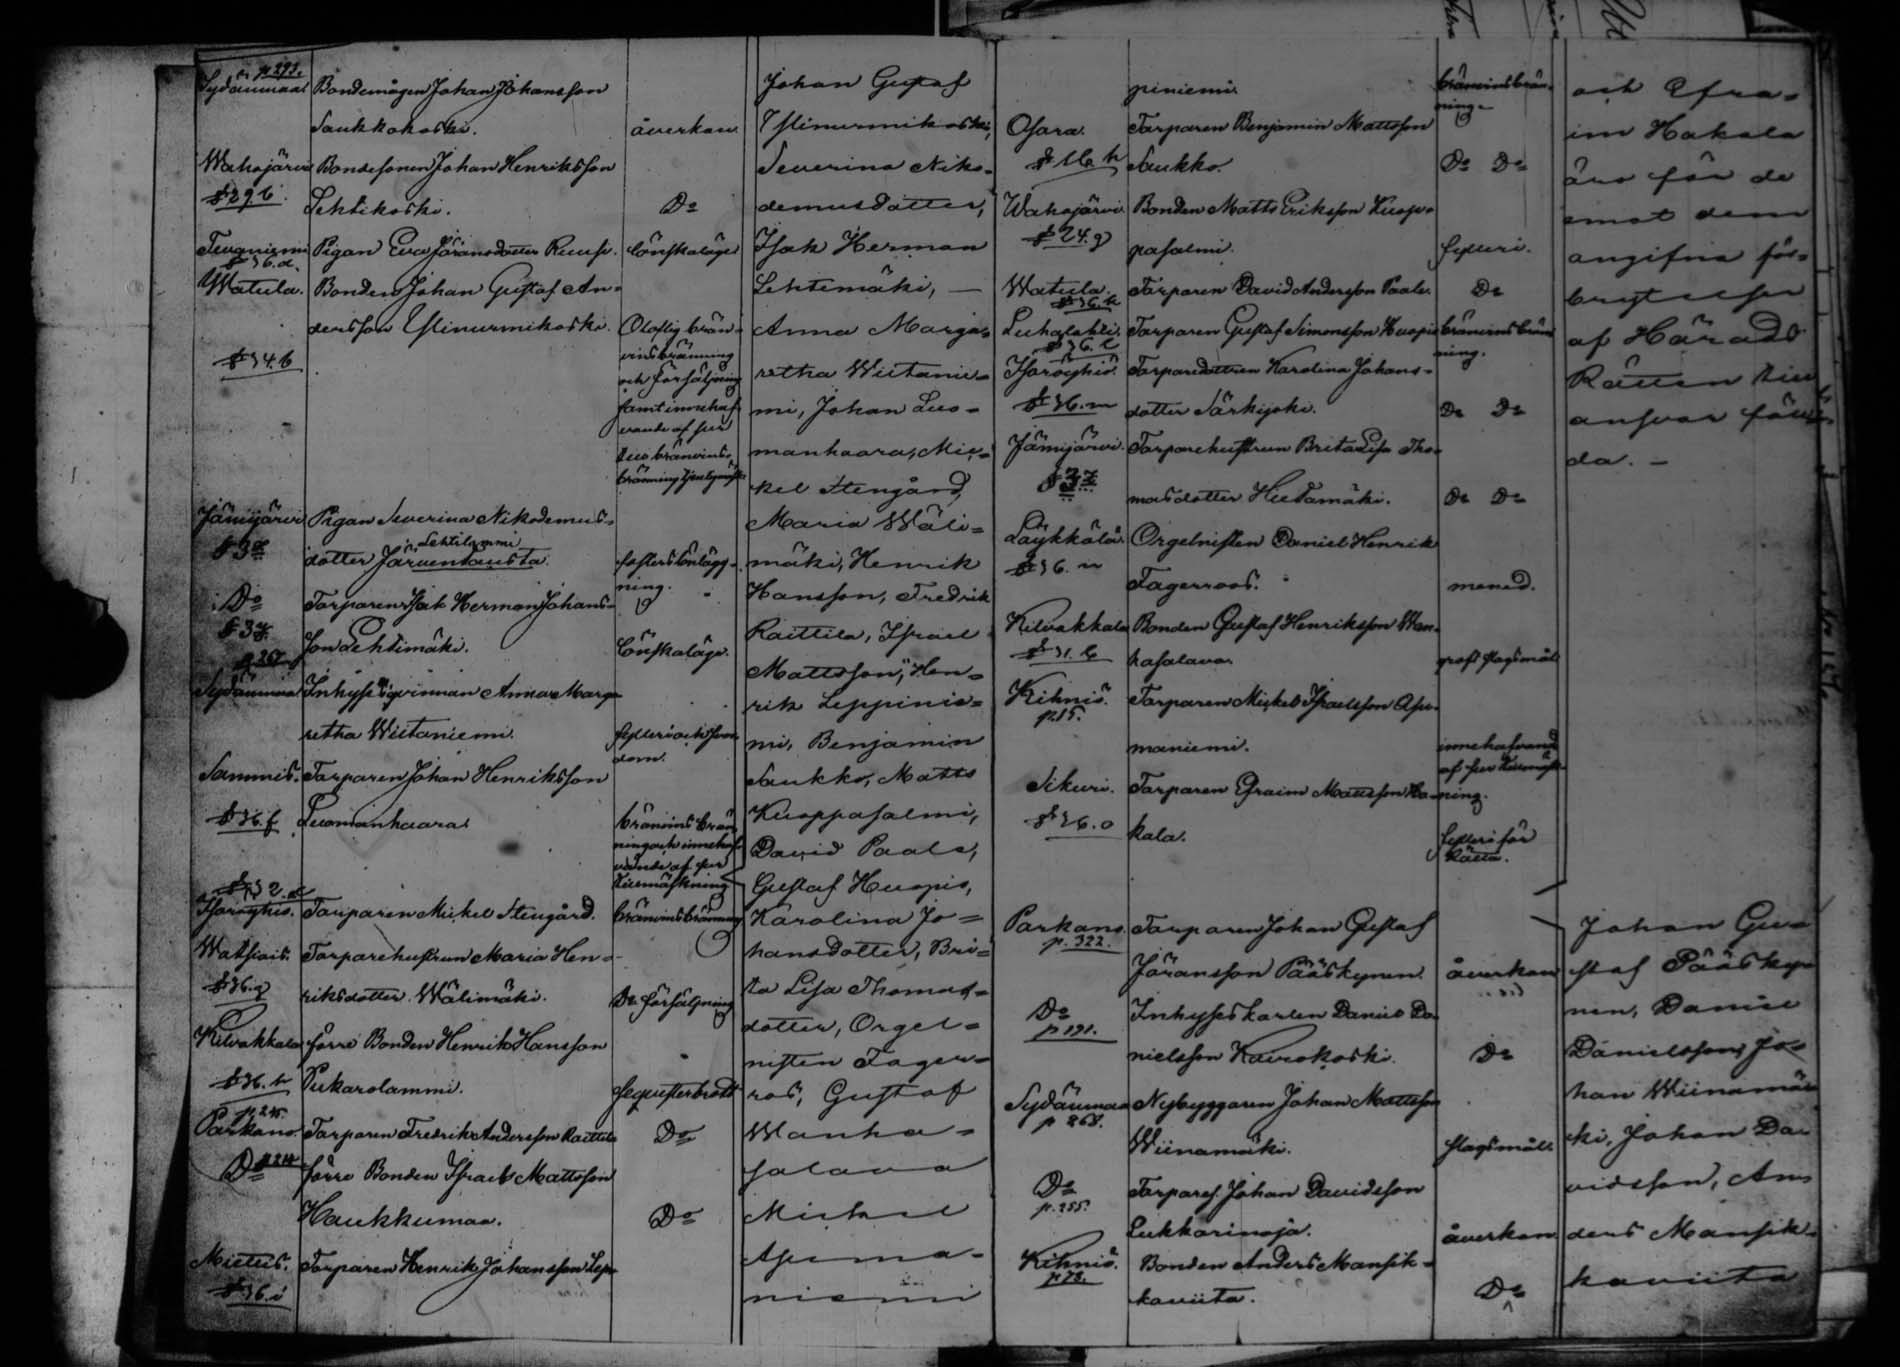 p 293.
Sydänmaa Bondemågen Johan Johansson
Saukkokoski. åverkan
Wahojärvi Bondesonen Johan Henriksson
§ 29. b. Lehtikoski. Do
Pigan Eva Göransdotter lönskaläge
§ 36. d.
Watula. Bonden Johan Gustaf An-
dersson Ylinurmikoski. Oloflig brän-
vinsbränning
§ 34. b
och försäljning
samt innehaf-
vande af
bränvins-
bränning
Jämijärvi Pigan Severina Nikodemus-
Lehtilammi
§ 3 dotter Järventausta. fosters lönlägg-
ning.
Do Torparen Isak Herman Johans-
§ 3
son Lehtimäki. Lönskaläge.
Sydänmaa Inhysesqvinnan Anna Marga-
retha Wiitaniemi. fylleri och
dom.
Sammis. Torparen Johan Henriksson
§ 36. f Luomanhaara bränvinsbrän-
ning och innehaf-
vande af
§ 32. d
Torparen Mickel Stengård. bränvinsbränning
Torparehustrun Maria Hen-
§ 36. g riksdotter Wälimäki. Do försäljning
Kilvakkala förre Bonden Henrik Hansson
§ 36. h Pukarolammi. sequesterbrott
p. 215.
Parkano Torparen Fredrik Andersson Raittila Do
Do förre Bonden Israel Mattsson
Haukkumaa. Do
Mietus. Torparen Henrik Johansson Lep-
§ 36. i
Johan Gustaf
Ylinurmikoski,
Severina Niko-
demusdotter,
Isak Herman
Lehtimäki, —
Anna Marga-
retha Wiitanie-
mi, Johan Luo-
manhaara, Mic-
kel Stengård,
Maria Wäli-
mäki, Henrik
Hansson, Fredrik
Raittila, Israel
Mattsson, Hen-
rik Leppinie-
mi, Benjamin
Saukko, Matts
Kuoppasalmi,
David Paale,
Gustaf Huopio,
Karolina Jo-
hansdotter, Bri-
ta Lisa Thomas-
dotter, Orgel-
nisten Fager-
ros, Gustaf
Wanha-
salava
Mickel
Apuma-
niemi
piniemi. bränvinsbrän-
ning
Osara. Torparen Benjamin Mattsson
§ 16. k Saukko. Do Do
Wahojärvi Bonden Matts Eriksson Kuop-
§ 24. g pasalmi. fylleri.
Watula. Torparen David Andersson Paale. Do
§ 36. k
Luhalahti. Torparen Gustaf Simonsson Huopio bränvinsbrän-
§ 36. l
ning.
Torparedottren Karolina Johans-
§ 36. m dotter Särkijoki. Do Do
Jämijärvi. Torparehustrun Brita Lisa Tho-
§ 3 masdotter Hietamäki. Do Do
Läykkälä. Orgelnisten Daniel Henrik
§ 36. n Fagerroos. mened.
Kilvakkala Bonden Gustaf Henriksson Wan-
§ 31. b hasalava. groft slagsmål
Kihniö. Torparen Mickel Israelsson Apu-
p. 15.
maniemi. innehafvande
af
Sikuri. Torparen Efraim Mattsson Ha- ning.
§ 36. o kala. fylleri för
Rätta.
Parkano Torparen Johan Gustaf
p. 322.
Jöransson Pääskynen. åverkan
Do Inhyseskarlen Daniel Da-
p 191.
nielsson Kaivokoski. Do
Sydänmaa Nybyggaren Johan Mattsson
p 268.
Wiinamäki. slagsmål.
Do Torpares. Johan Davidsson
p. 255.
Lukkarinoja. åverkan
Kihniö. Bonden Anders Mansik-
p 28.
kaviita. Do
och Efra-
im Hakala
äro för de
emot dem
angifna för-
brytelser
af Härads
Rätten till
ansvar fäll-
da. —
Johan Gu-
staf Pääsky-
nen, Daniel
Danielsson, Jo-
han Wiinamä-
ki, Johan Da-
vidsson, An-
ders Mansik-
kaviita